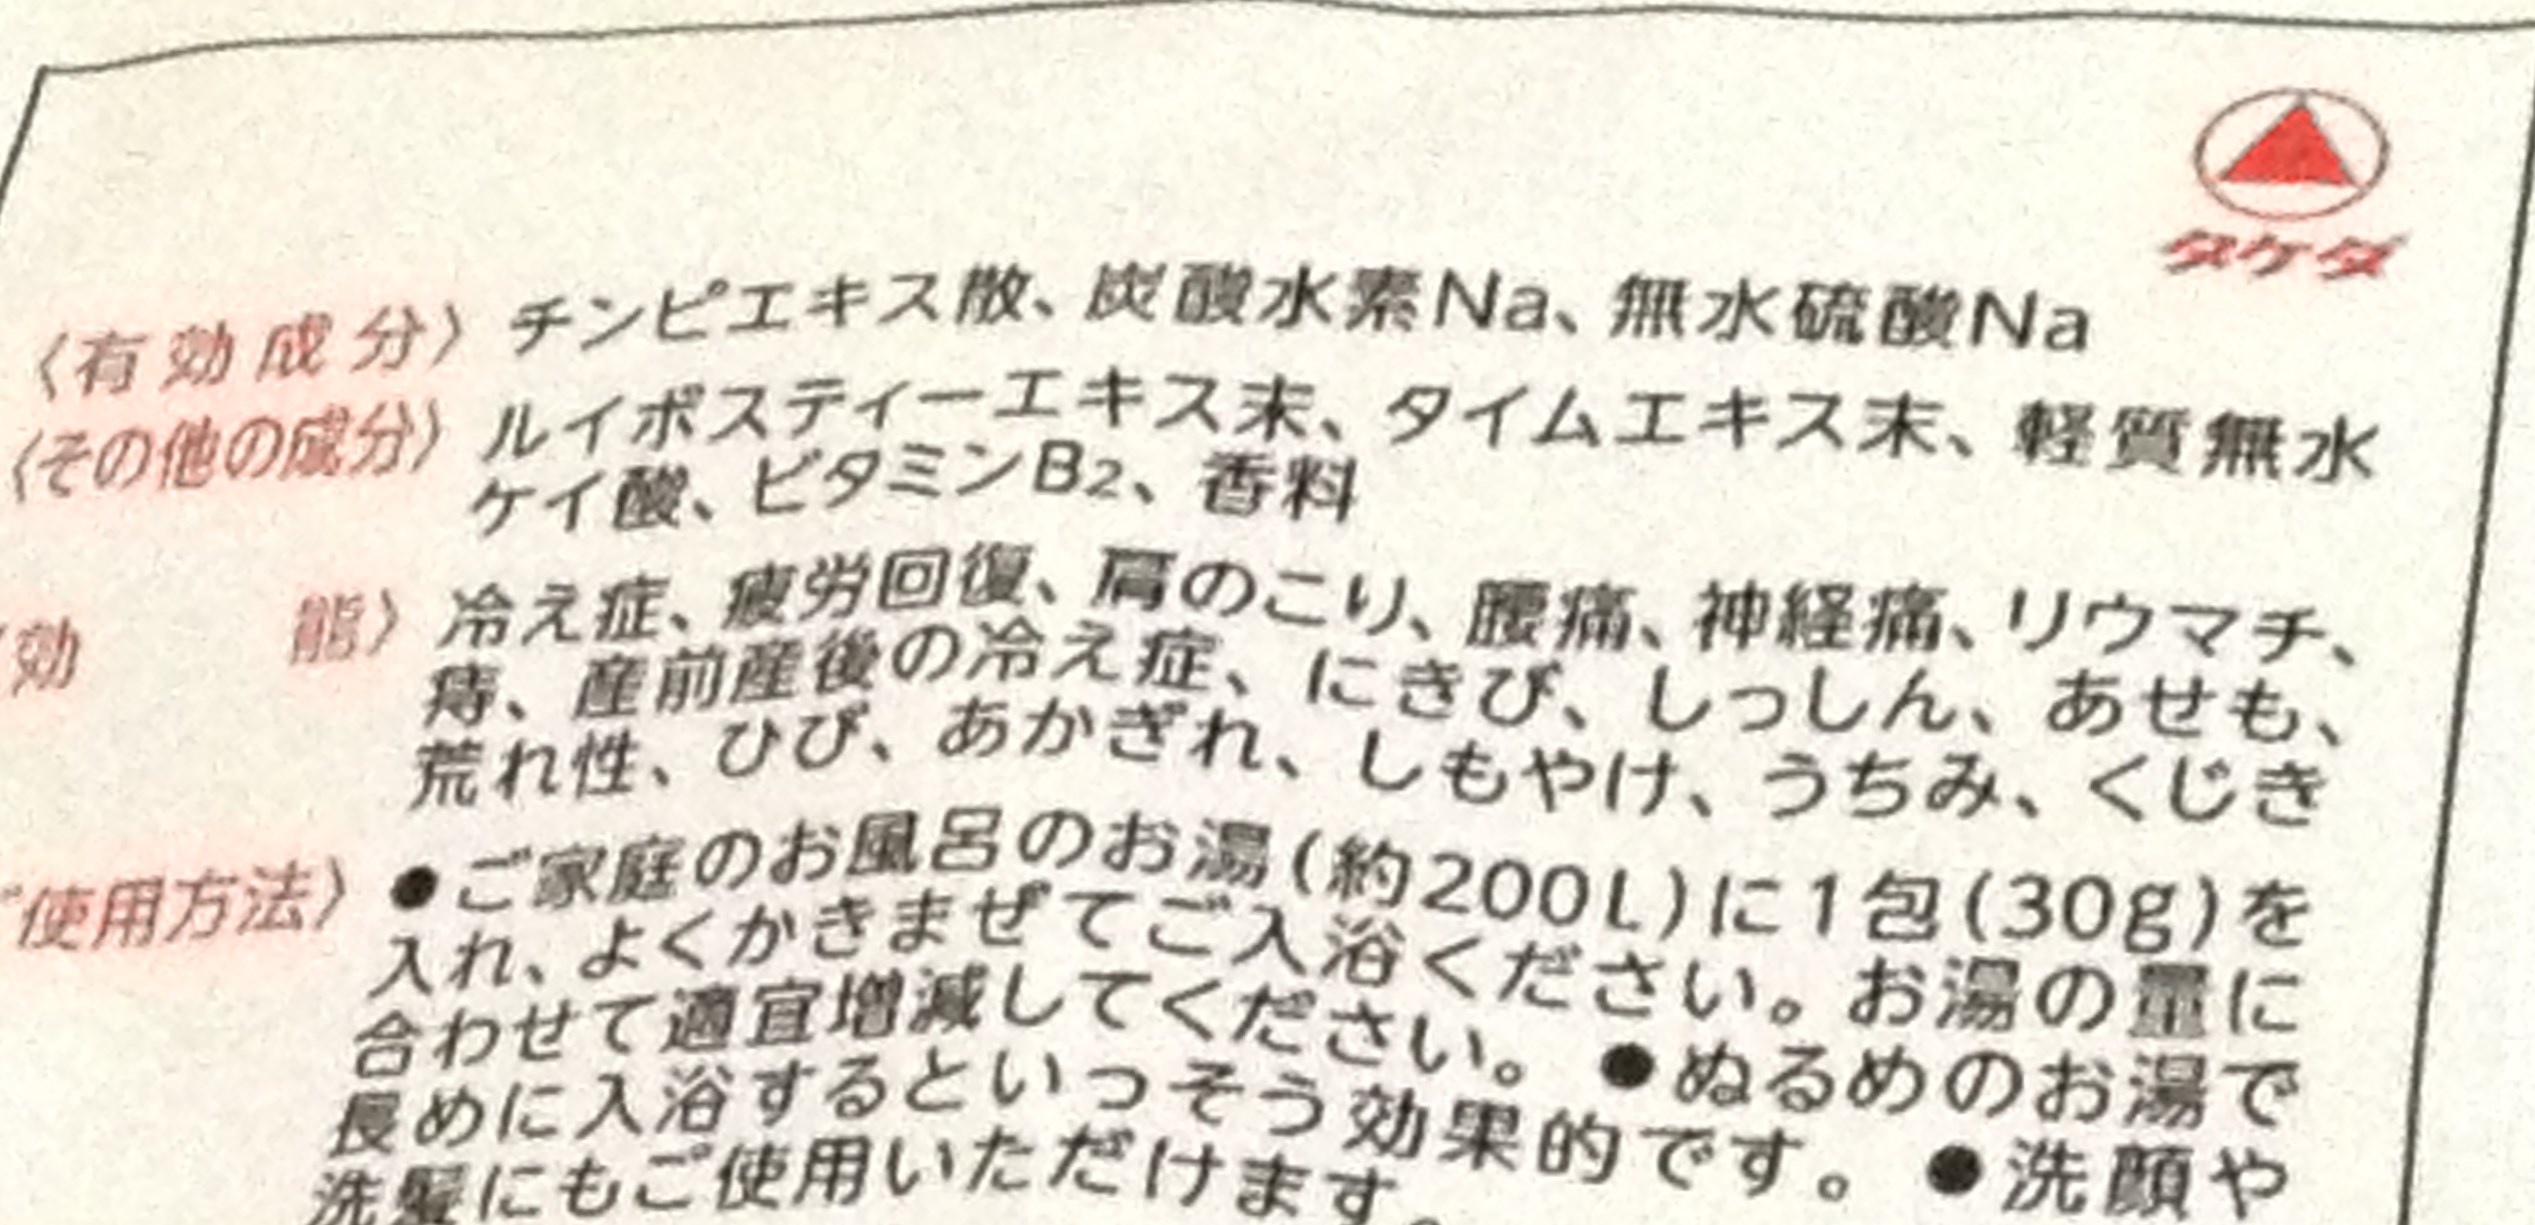 タケダ
〈有効成分〉 チンピエキス散、炭酸水素Na、無水硫酸Na
〈その他の成分〉 ルイボスティーエキス末、タイムエキス末、軽質無水
ケイ酸、ビタミンB2、香料
〈効 能〉 冷え症、疲労回復、肩のこり、腰痛、神経痛、リウマチ、
痔、産前産後の冷え症、にきび、しっしん、あせも、
荒れ性、ひび、あかぎれ、しもやけ、うちみ、くじき
ご使用方法〉 ●ご家庭のお風呂のお湯(約200L)に1包(30g)を
入れ、よくかきまぜてご入浴ください。お湯の量に
合わせて適宜増減してください。●ぬるめのお湯で
長めに入浴するといっそう効果的です。●洗顔や
洗髪にもご使用いただけます。